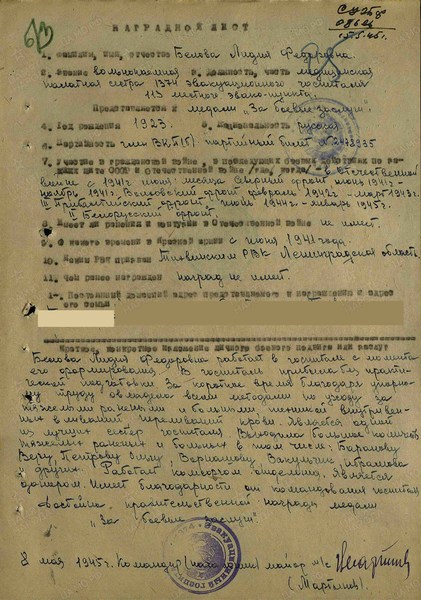 НАГРАДНОЙ ЛИСТ
1. Фамилия, имя, отчество Белова Лидия Федоровна.
2. Звание вольнонаемная 3. Должность, часть медицинская
палатная сестра 1374 эвакуационного госпиталя
113 местного эвако-пункта.
Представляется к медали „За боевые заслуги".
4. Год рождения 1923. 5. Национальность русская
6. Партийность член ВКП(б) партийный билет №
7. Участие в гражданской войне, в последующих боевых действиях по защите СССР и Отечественной войне /где, когда/ в Отечественной
войне с 1941г июня месяца Северный фронт июнь 1941г-
ноябрь 1941г. Волховский фронт февраль 1942г - март 1943г.
III Прибалтийский фронт июнь 1944г. - январь 1945г.
II Белорусский фронт.
8. Имеет ли ранения и контузии в Отечественной войне не имеет.
9. С какого времени в Красной армии с июня 1941 года.
10. Каким РВК призван Тихвинским РВК Ленинградской области
11. Чем ранее награжден наград не имеет.
1. Постоянный домашний адрес представляемого к награждению и адрес
его семьи
Краткое, конкретное изложение личного боевого подвига или заслуг
Белова Лидия Федоровна работает в госпитале с момента
его формирования. В госпиталь прибыла без практи-
ческой подготовки. За короткое время благодаря упорно-
му труду овладела всеми методами по уходу за
тяжелыми ранеными и больными, техникой внутривен-
ных вливаний, переливаний крови. Является одной
из лучших сестер госпиталя. Выходила большое количество
тяжелых раненых и больных в том числе: Баранову
Веру Петровну
и других. Работает комсоргом отделения. Является
донором. Имеет благодарности от командования госпиталя
Достойна правительственной награды медали
„За боевые заслуги".
8 мая 1945г. Командир (начальник) майор м/с
(Мартынов).